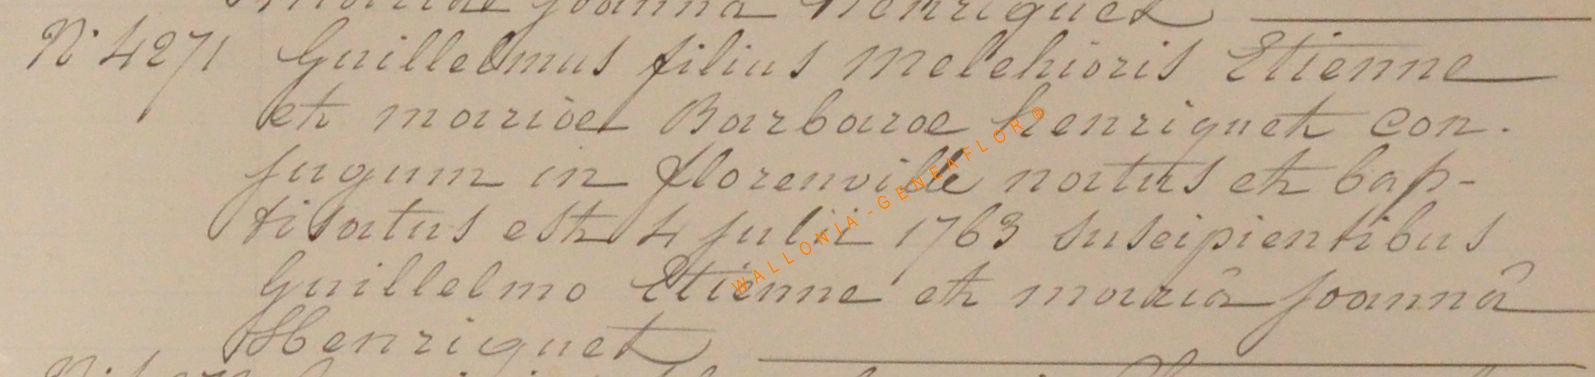 Joanna Henriquet
N° 4271 Guillelmus filius Melchioris Etienne
et mariae Barbarae henriquet con-
jugum in florenville natus et bap-
tisatus est 4 julii 1763 suscipientibus
Guillelmo Etienne et mariâ joannâ
Henriquet
WALLONIA-GENEAFLOR©